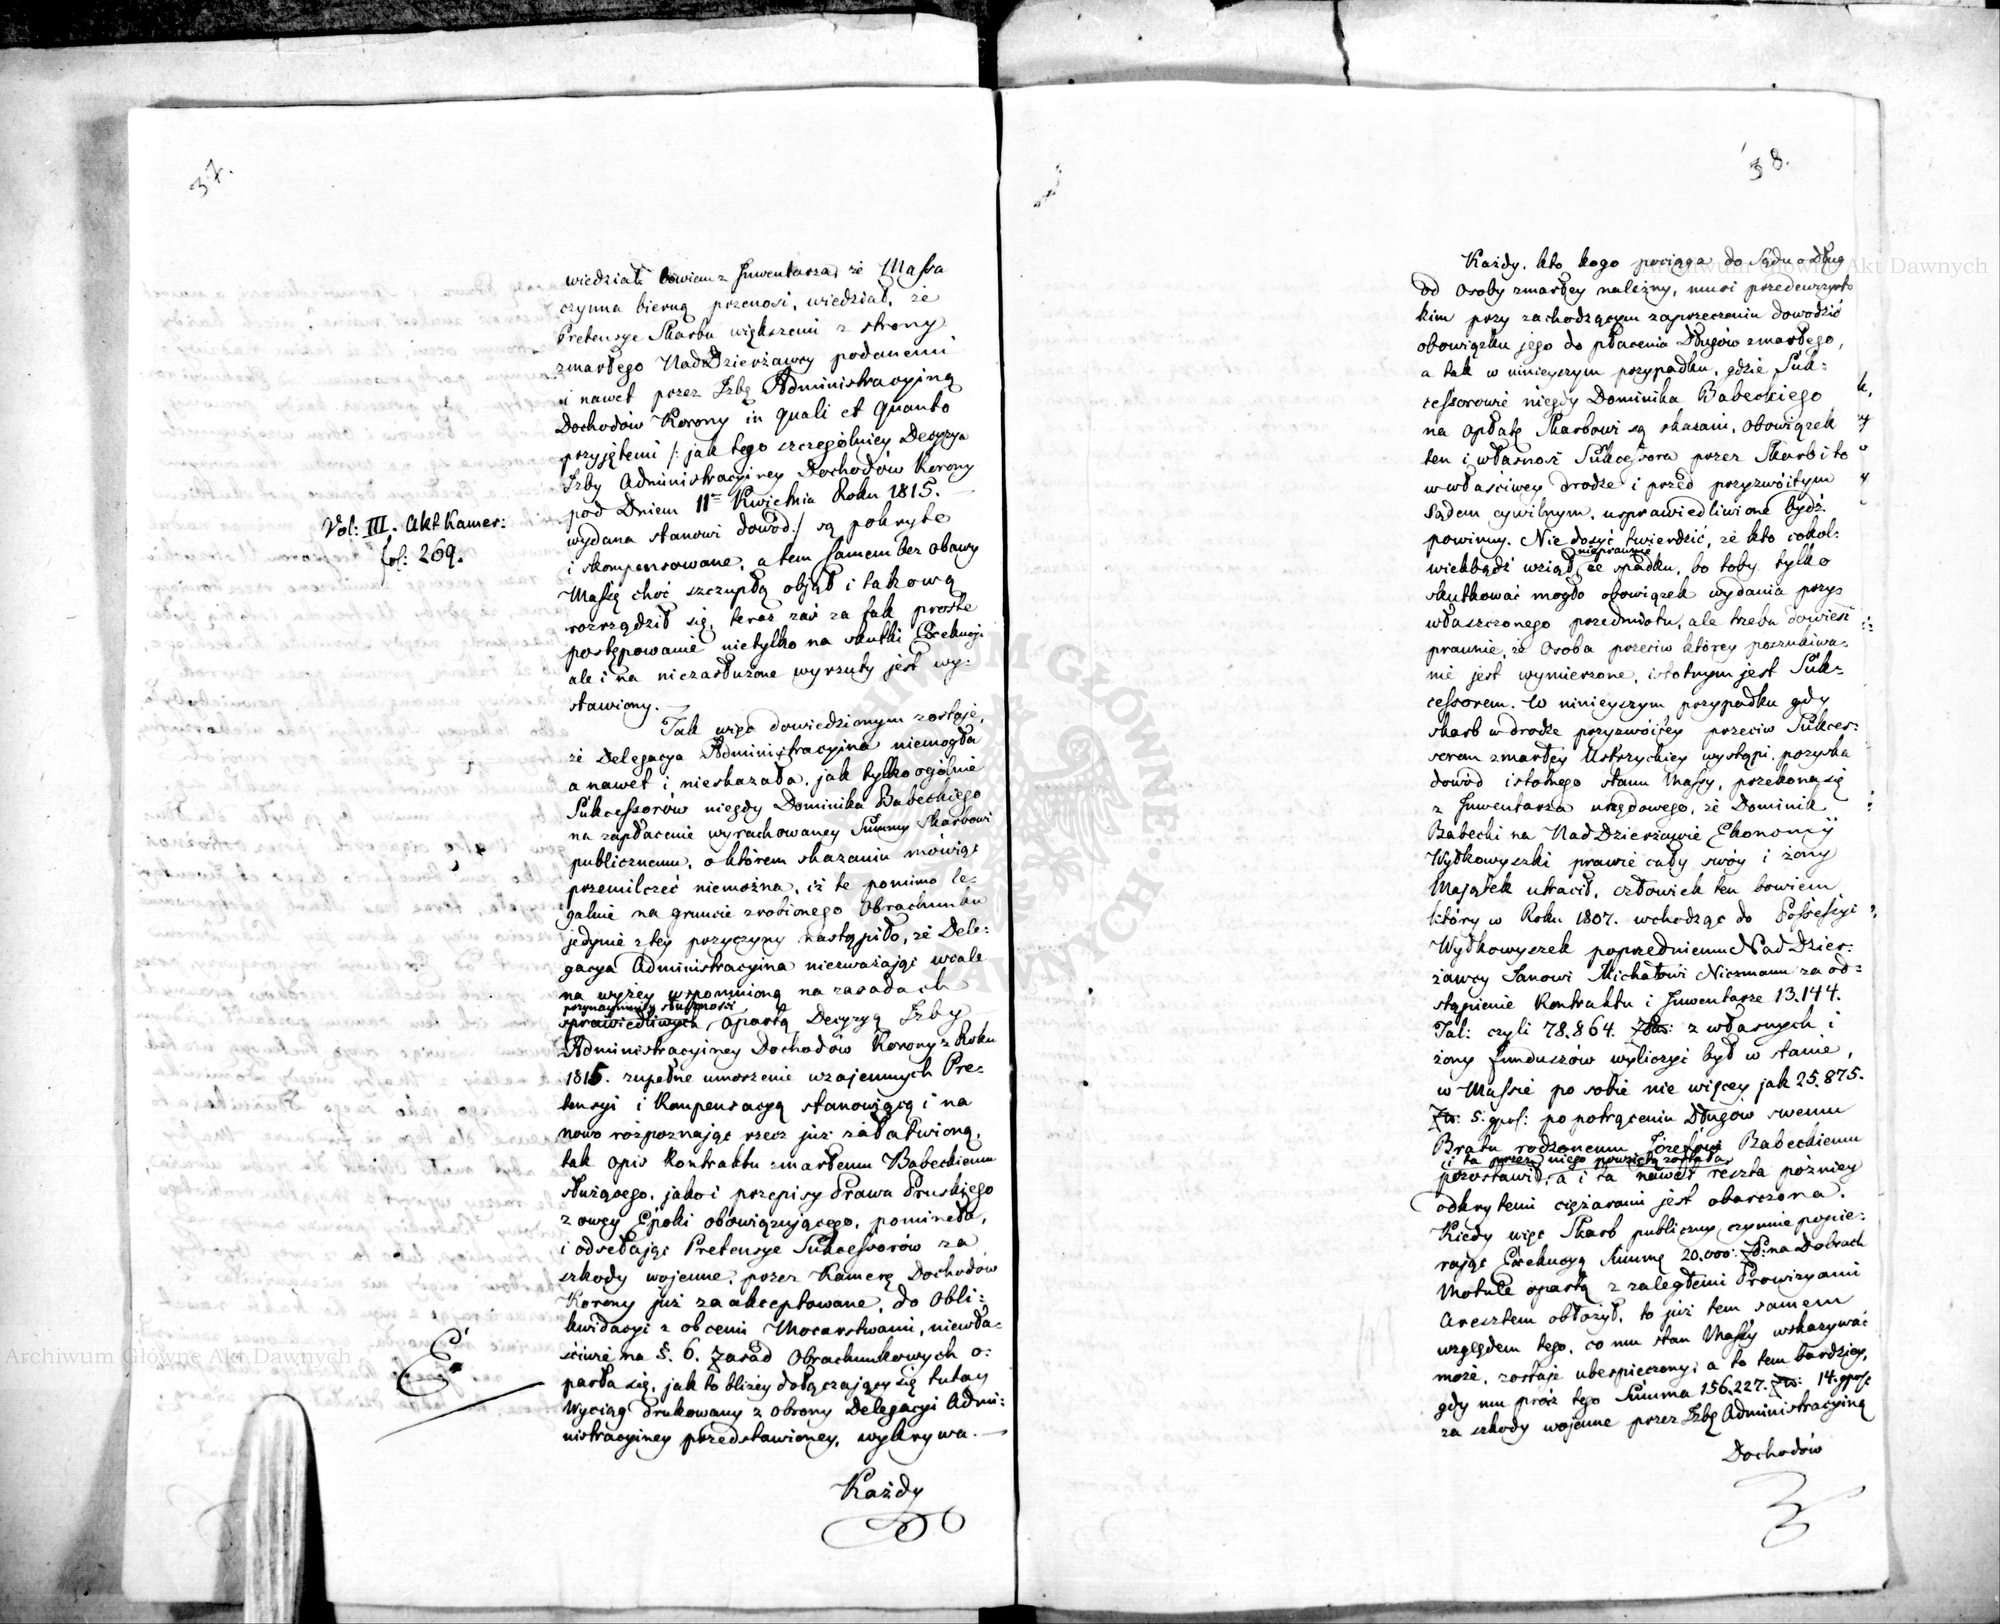 37.
wiedział bowiem z Inwentarza, że Massa
czynna bierną przenosi, wiedział, że
Pretensye Skarbu większemi z strony
zmarłego NadDzierżawcy podanemi
i nawet przez Izbę Administracyiną
Dochodów Korony in quali et quanto
przyjętemi /: jak tego szczególniey Decyzya
Izby Administracyiney Dochodów Korony
pod Dniem 11m Kwietnia Roku 1815. —
wydana stanowi dowód :/ są pokryte
Vol: III. Akt Kamer:
fol: 269.
i skompensowane, a tem samem bez obawy
Massę choć szczupłą objął i takową
rozrządził się, teraz zaś za tak proste
postępowanie nietylko na skutki Exekucyi
ale i na niezasłużone wyrzuty jest wy-
stawiony. —
Tak więc dowiedzionym zostaje,
że Delegacya Administracyina niemogła
a nawet i nieskazała, jak tylko ogólnie
Sukcessorów niegdy Dominika Babeckiego
na zapłacenie wyrachowaney Summy Skarbowi
publicznemu, o którem skazaniu mówiąc
przemilczeć niemożna, iż te pomimo le-
galnie na gruncie zrobionego Obrachunku
jedynie z tey przyczyny nastąpiło, że Dele-
gacya Administracyina niezważając wcale
na wyżey wspomnioną na zasadach
przynaymniey słuszności
sprawiedliwych opartą Decyzyą Izby
Administracyiney Dochodów Korony z Roku
1815. zupełne umorzenie wzajemnych Pre-
tensyi i Kompensacyą stanowiącą i na
nowo rozpoznając rzecz już załatwioną,
tak opis Kontraktu zmarłemu Babeckiemu
służącego, jako i przepisy Prawa Pruskiego
z owey Epoki obowiązującego, pominęła,
i odsełając Pretensye Sukcessorów za
szkody wojenne, przez Kamerę Dochodów
Korony już zaakceptowane, do Obli-
kwidacyi z obcemi Mocarstwami, niewła-
ściwie na §. 6. Zasad Obrachunkowych o-
parła się, jak to bliżey dołączający się tutay
Wyciąg drukowany z Obrony Delegacyi Admi-
nistracyiney przedstawioney, wykrywa. —
Każdy
38.
Każdy, kto kogo pociąga do Sądu o Dług
od Osoby zmarłey należny, musi przedewszyst-
kim przy zachodzącym zaprzeczeniu dowodzić
obowiązku jego do płacenia Długów zmarłego,
a tak w ninieyszym przypadku, gdzie Suk-
cessorowie niegdy Dominika Babeckiego
na opłatę Skarbowi są skazani, obowiązek
ten i własność Sukcessora przez Skarb i to
w właściwey drodze i przed przyzwoitym
Sądem cywilnym, usprawiedliwione bydź
powinny. Nie dosyć twierdzić, że kto cokol-
nieprawnie
wiekbądź wziął ze spadku, bo toby tylko
skutkować mogło obowiązek wydania przy-
właszczonego przedmiotu, ale trzeba dowieść
prawnie, że Osoba przeciw którey poszukiwa-
nie jest wymierzone, istotnym jest Suk-
cessorem. W ninieyszym przypadku gdy
skarb w drodze przyzwoitey przeciw Sukces-
sorom zmarłey Ustrzyckiey wystąpi, pozyska
dowód istotnego stanu Massy, przekona się
z Inwentarza urzędowego, że Dominik
Babecki na NadDzierżawie Ekonomij
Wyłkowyszki prawie cały swóy i żony
Majątek utracił, człowiek ten bowiem
który w Roku 1807. wchodząc do Possessyi
Wyłkowyszek poprzedniemu NadDzier-
żawcy Janowi Michałowi Niezmann za od-
stąpienie Kontraktu i Inwentarze 13.144.
Tal: czyli 78.864. Złp: z własnych i
żony funduszów wyliczyć był w stanie,
w Massie po sobie nie więcey jak 25.875.
Złp: 5. grosz: po potrąceniu Długów swemu
Bratu rodzonemu Józefowi Babeckiemu
i ta przez niego powzięta została
pozostawił, a i ta nawet reszta późniey
odkrytemi ciężarami jest obarczona.
Kiedy więc Skarb publiczny czynnie popie-
rając Exekucyą Summę 20.000. Złp: na Dobrach
Motule opartą z zaległemi Prowizyami
Aresztem obłożył, to już tem samem
względem tego, co mu stan Massy wskazywać
może, zostaje ubespieczony, a to tem bardziey,
gdy mu prócz tego Summa 156.227. Złp: 14. grosz
za szkody wojenne przez Izbę Administracyiną
Dochodów
Archiwum Główne Akt Dawnych
Archiwum Główne Akt Dawnych
ARCHIWUM GŁÓWNE AKT DAWNYCH